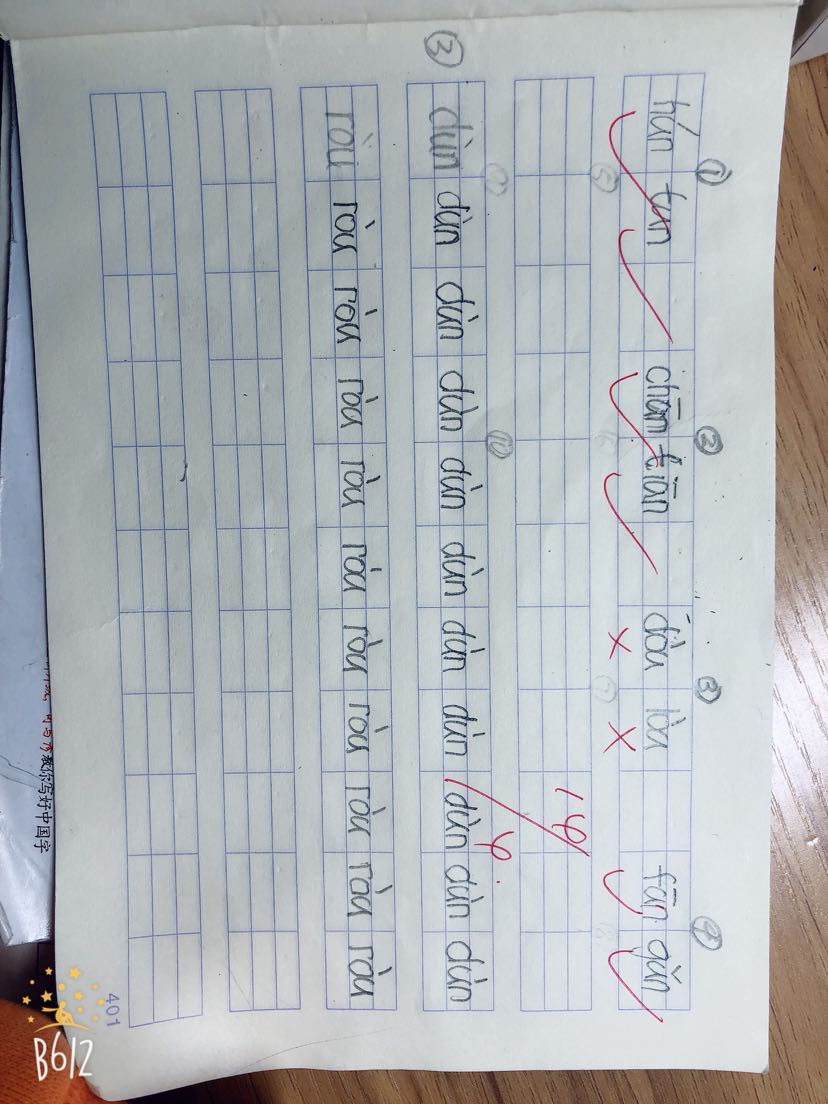 ① ② ③ ④
hún tun chān tiān dòu lòu fān gǔn
19
③
dùn dùn dùn dùn dùn dùn dùn dùn dùn dùn dùn
9.
⑩
ròu ròu ròu ròu ròu ròu ròu ròu ròu ròu ròu
401
教你写好中国字
B612